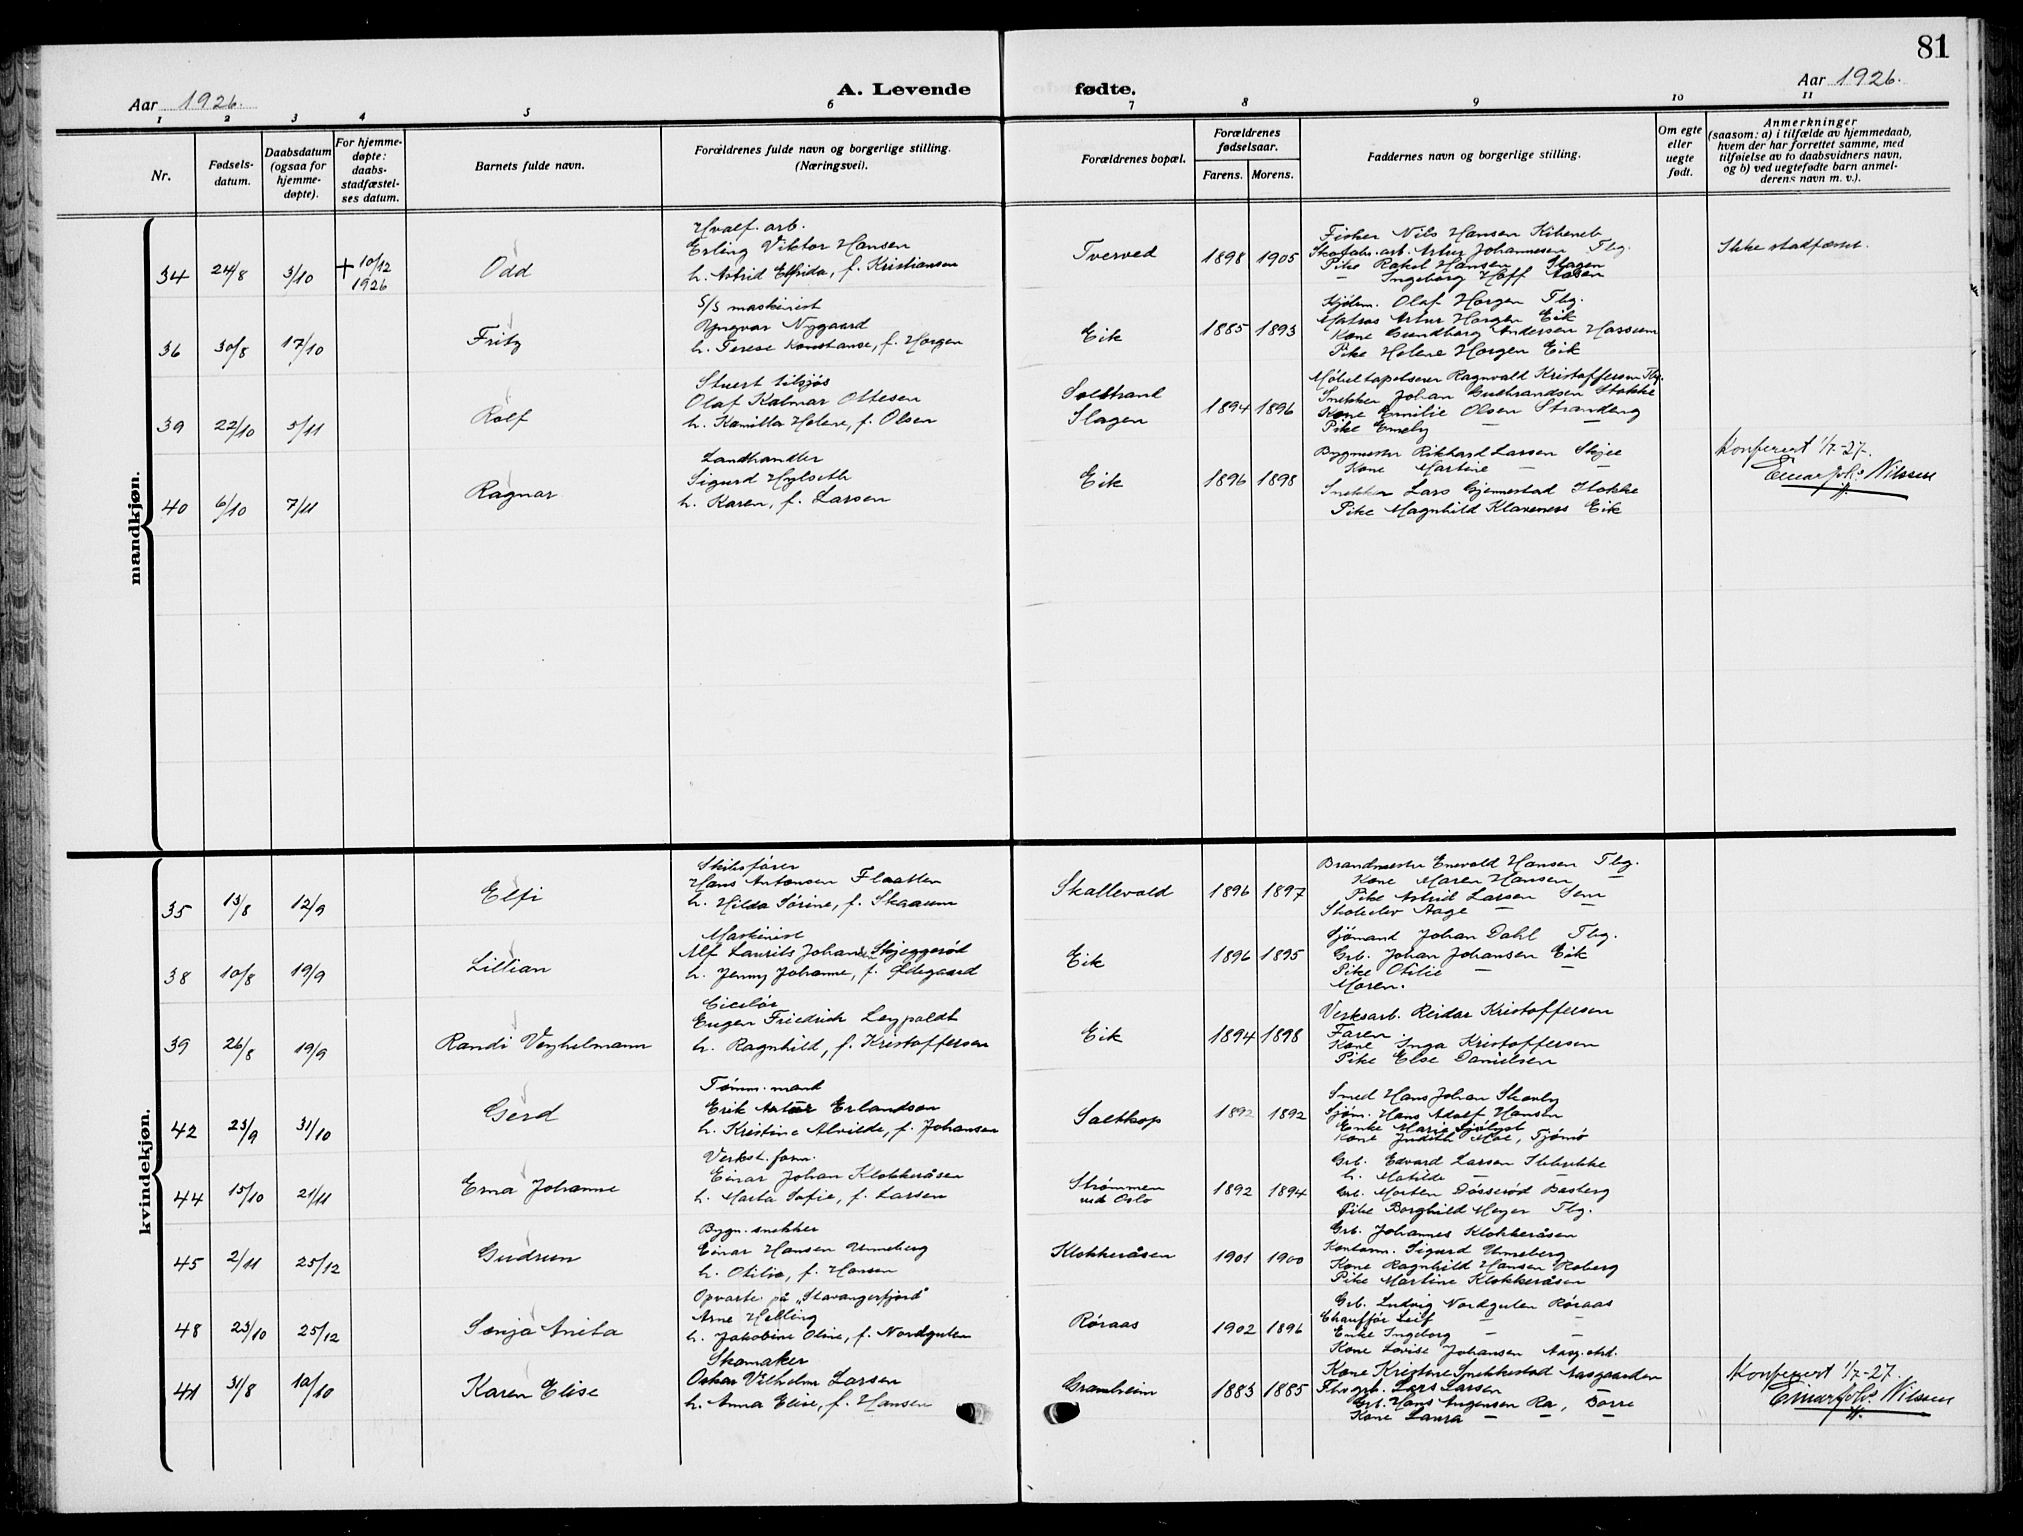 81
Aar 1926.
A. Levende fødte.
Aar 1926.
1 2 3 4 5 6 7 8 9 10 11
Nr.
Fødsels-
datum.
Daabsdatum
(ogsaa for
hjemme-
døpte).
For hjemme-
døpte:
daabs-
stadfæstel-
ses datum.
Barnets fulde navn.
Forældrenes fulde navn og borgerlige stilling.
(Næringsvei).
Forældrenes bopæl.
Forældrenes
fødselsaar.
Farens. Morens.
Faddernes navn og borgerlige stilling.
Om egte
eller
uegte
født.
Anmerkninger
(saasom: a) i tilfælde av hjemmedaab,
hvem der har forrettet samme, med
tilføielse av to daabsvidners navn,
og b) ved uegtefødte barn anmel-
derens navn m. v.).
mandkjøn.
34 24/8 3/10 + 10/12 1926
Odd
Hvalf. arb.
Erling Viktor Hansen
h. Astrid Elfrida, f. Kristiansen
Tverved
1898 1905
Fisker Nils Hansen
Artur Johannesen Tbg.
Pike Rakel Hansen Slagen
— Ingeborg Hoff Aasen
Ikke stadfæstet.
36 30/8 17/10
Fritz
S/S maskinist
Yngvar Nygaard
h. Terese Konstanse, f. Horgen
Eik
1885 1893
Kjølm. Olaf Horgen Tbg.
Matros Artur Horgen Eik
Kone Gundborg Andersen Hassum
Pike Helene Horgen Eik
39 22/10 5/11
Rolf
Stuert tilsjøs
Olaf Kalmar Ottesen
h. Kamilla Helene, f. Olsen
Solstrand
Slagen
1894 1896
Møbeltapetserer Ragnvald Kristoffersen Tbg.
Snekker Johan Gudbrandsen Stokke
Kone Emilie Olsen Strandeng
Pike Emely — —
40 6/10 7/11
Ragnar
Landhandler
Sigurd Hylseth
h. Karen, f. Larsen
Eik
1896 1898
Bygmester Rikhard Larsen Skjee
Kone Martine — —
Snekker Lars Gjennestad Stokke
Pike Magnhild Klaveness Eik
Konferert 1/7-27.
Einar Joh. Nilssen
kvindekjøn.
35 13/8 12/9
Elfi
Skibsfører
Hans Antonsen Flaatten
h. Hilda Sørine, f. Skaaum
Skallevald
1896 1897
Brandmester Enevald Hansen Tbg.
Kone Maren Hansen —
Pike Astrid Larsen Sem
Skoleelev Aage — —
38 10/8 19/9
Lillian
Maskinist
Alf Laurits Johansen Skjeggerød
h. Jenny Johanne, f. Ødegaard
Eik
1896 1895
Sjømand Johan Dahl Tbg.
Grb. Johan Johansen Eik
Pike Otilie — —
Moren.
39 26/8 19/9
Randi Veyhelmann
Ciselør
Eugen Friedrich Leypoldt
h. Ragnhild, f. Kristoffersen
Eik
1894 1898
Verksarb. Reidar Kristoffersen
Faren.
Kone Inga Kristoffersen
Pike Else Danielsen
42 23/9 31/10
Gerd
Tømm. mand
Erik Artur Erlandson
h. Kristine Alvilde, f. Johansen
Saltkop
1892 1892
Smed Hans Johan Skauby
Sjøm. Hans Adolf Hansen
Enke Marie Sjølyst
Kone Judith Moe, Tjømø
44 15/10 21/11
Erna Johanne
Verkst. form.
Einar Johan Klokkeråsen
h. Marta Sofie, f. Larsen
Strømmen
ved Oslo
1892 1894
Grb. Edvard Larsen
h. Matilde —
Grb. Morten Døsserød Basberg
Pike Borghild Meyer Tbg.
45 2/11 25/12
Gudrun
Bygn. snekker
Einar Hansen Unneberg
h. Otilie, f. Hansen
Klokkeråsen
1901 1900
Grb. Johannes Klokkeråsen
Kontorm. Sigurd Unneberg
Kone Ragnhild Hansen Roberg
Pike Martine Klokkeråsen
48 23/10 25/12
Sonja Anita
Opvarte. på „Stavangerfjord"
Arne Helling
h. Jakobine Oline, f. Nordguten
Røraas
1902 1896
Grb. Ludvig Nordguten Røraas
Chauffør Leif — —
Enke Ingeborg — —
Kone Lovise Johansen Aasg. strd.
41 31/8 10/10
Karen Elise
Skomaker
Oskar Vilhelm Larsen
h. Anna Elise, f. Hansen
Granheim
1883 1885
Kone Kristine Snekkestad Aasgaarden
Fhv. grb. Lars Larsen —
Grb. Hans Angensen Ra, Borre
Kone Laura — — —
Konferert 1/7-27.
Einar Joh. Nilssen